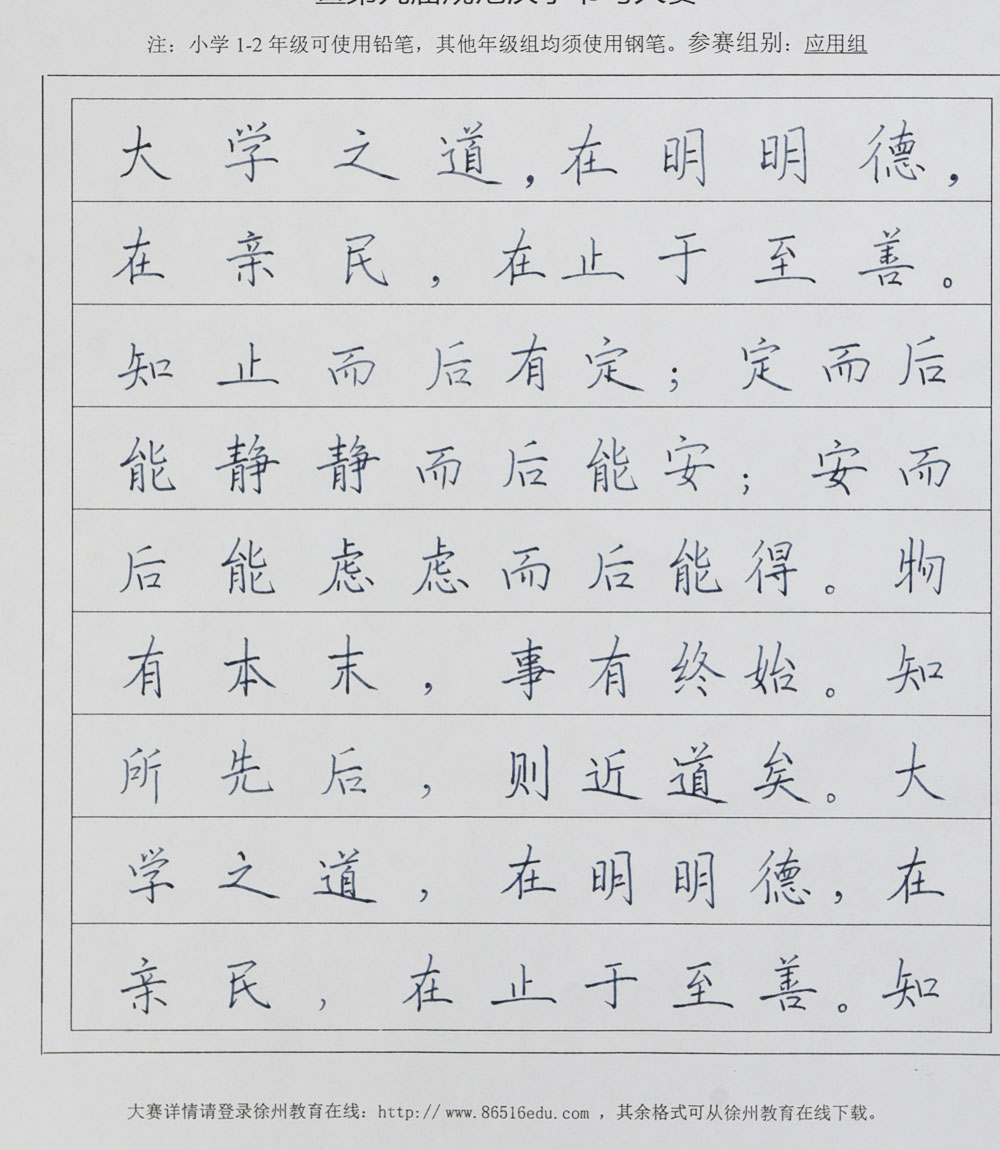 注：小学1-2年级可使用铅笔，其他年级组均须使用钢笔。参赛组别：应用组
大学之道，在明明德，
在亲民，在止于至善。
知止而后有定；定而后
能静静而后能安；安而
后能虑虑而后能得。物
有本末，事有终始。知
所先后，则近道矣。大
学之道，在明明德，在
亲民，在止于至善。知
大赛详情请登录徐州教育在线：http://www.86516edu.com，其余格式可从徐州教育在线下载。